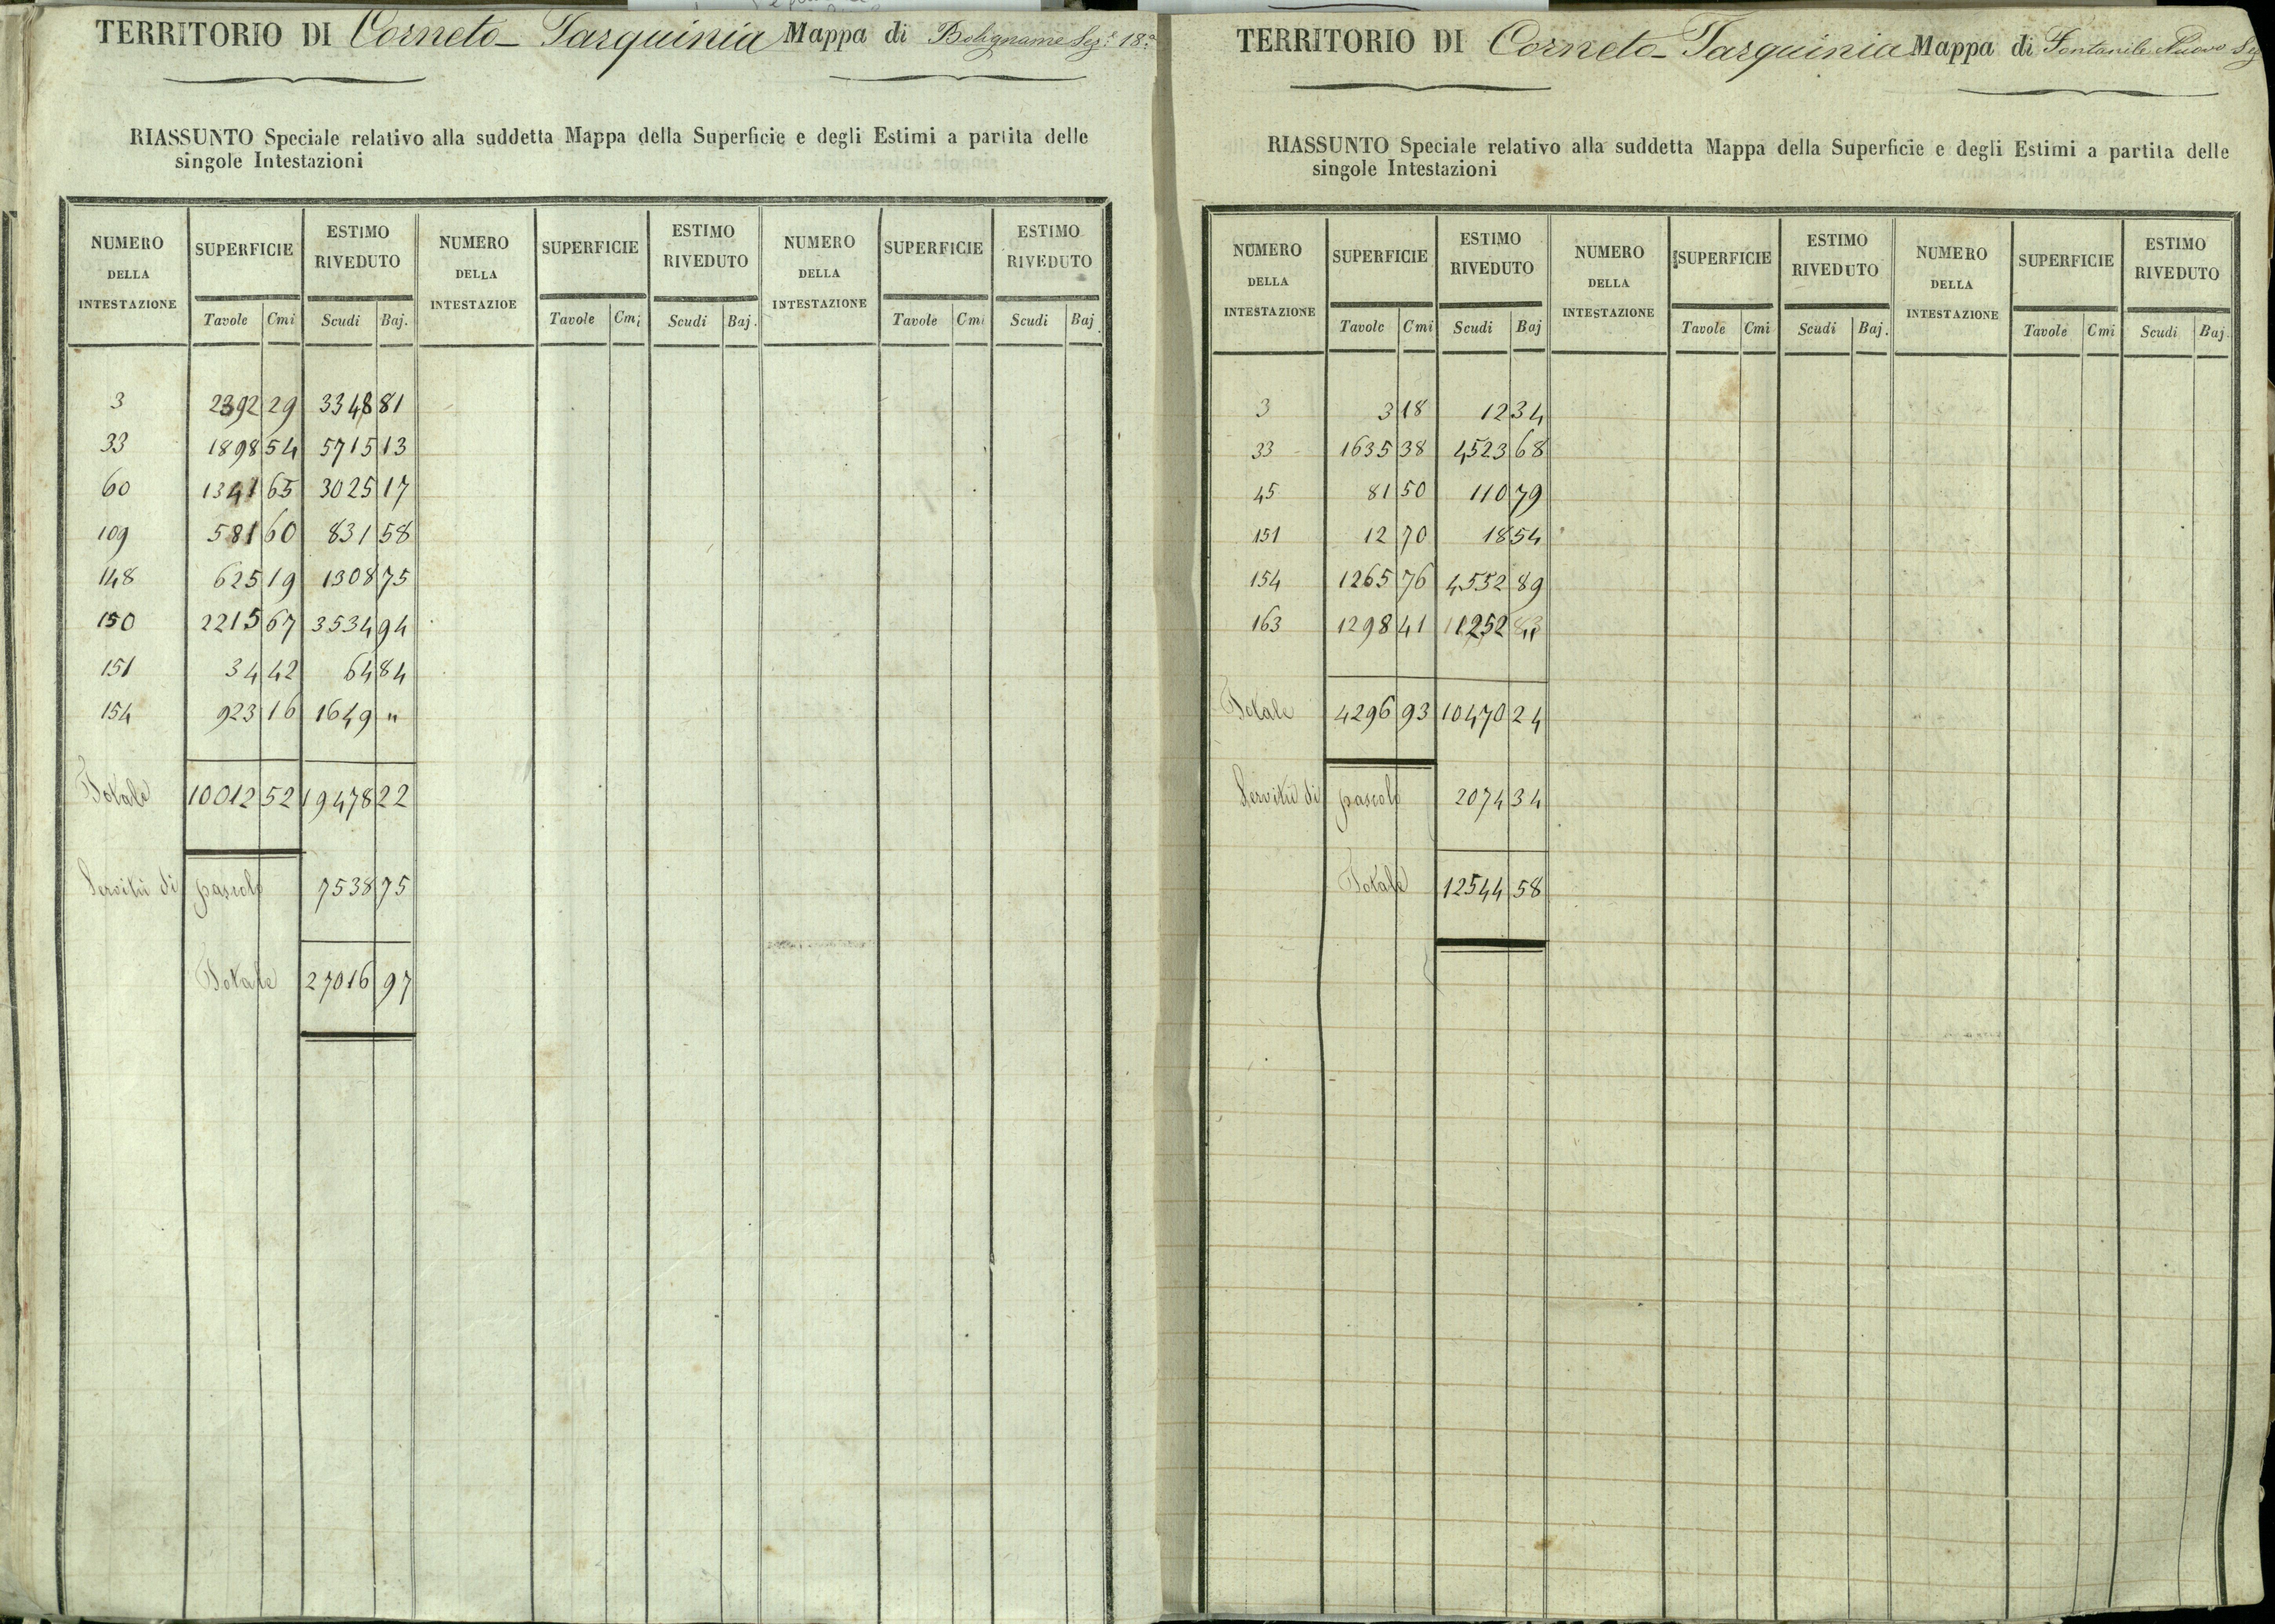 TERRITORIO DI Corneto-Tarquinia Mappa di Bolgname Sez.e 18.a
RIASSUNTO Speciale relativo alla suddetta Mappa della Superficie e degli Estimi a partita delle
singole Intestazioni
NUMERO DELLA INTESTAZIONE SUPERFICIE ESTIMO RIVEDUTO NUMERO DELLA INTESTAZIOE SUPERFICIE ESTIMO RIVEDUTO NUMERO DELLA INTESTAZIONE SUPERFICIE ESTIMO RIVEDUTO
Tavole Cmi Scudi Baj. Tavole Cmi Scudi Baj. Tavole Cmi Scudi Baj.
3 2392 29 3348 81
33 1898 54 5715 13
60 1341 65 3025 17
109 581 60 831 58
148 625 19 1308 75
150 2215 67 3534 94
151 34 42 64 84
154 923 16 1649 "
Totale 10012 52 19478 22
Servitù di pascolo 7538 75
Totale 27016 97
TERRITORIO DI Corneto-Tarquinia Mappa di Fontanile Nuovo Sez
RIASSUNTO Speciale relativo alla suddetta Mappa della Superficie e degli Estimi a partita delle
singole Intestazioni
NUMERO DELLA INTESTAZIONE SUPERFICIE ESTIMO RIVEDUTO NUMERO DELLA INTESTAZIONE SUPERFICIE ESTIMO RIVEDUTO NUMERO DELLA INTESTAZIONE SUPERFICIE ESTIMO RIVEDUTO
Tavole Cmi Scudi Baj Tavole Cmi Scudi Baj. Tavole Cmi Scudi Baj.
3 3 18 12 34
33 1635 38 4523 68
45 81 50 110 79
151 12 70 18 54
154 1265 76 4552 89
163 1298 41 1252
Totale 4296 93 10470 24
Servitù di pascolo 2074 34
Totale 12544 58